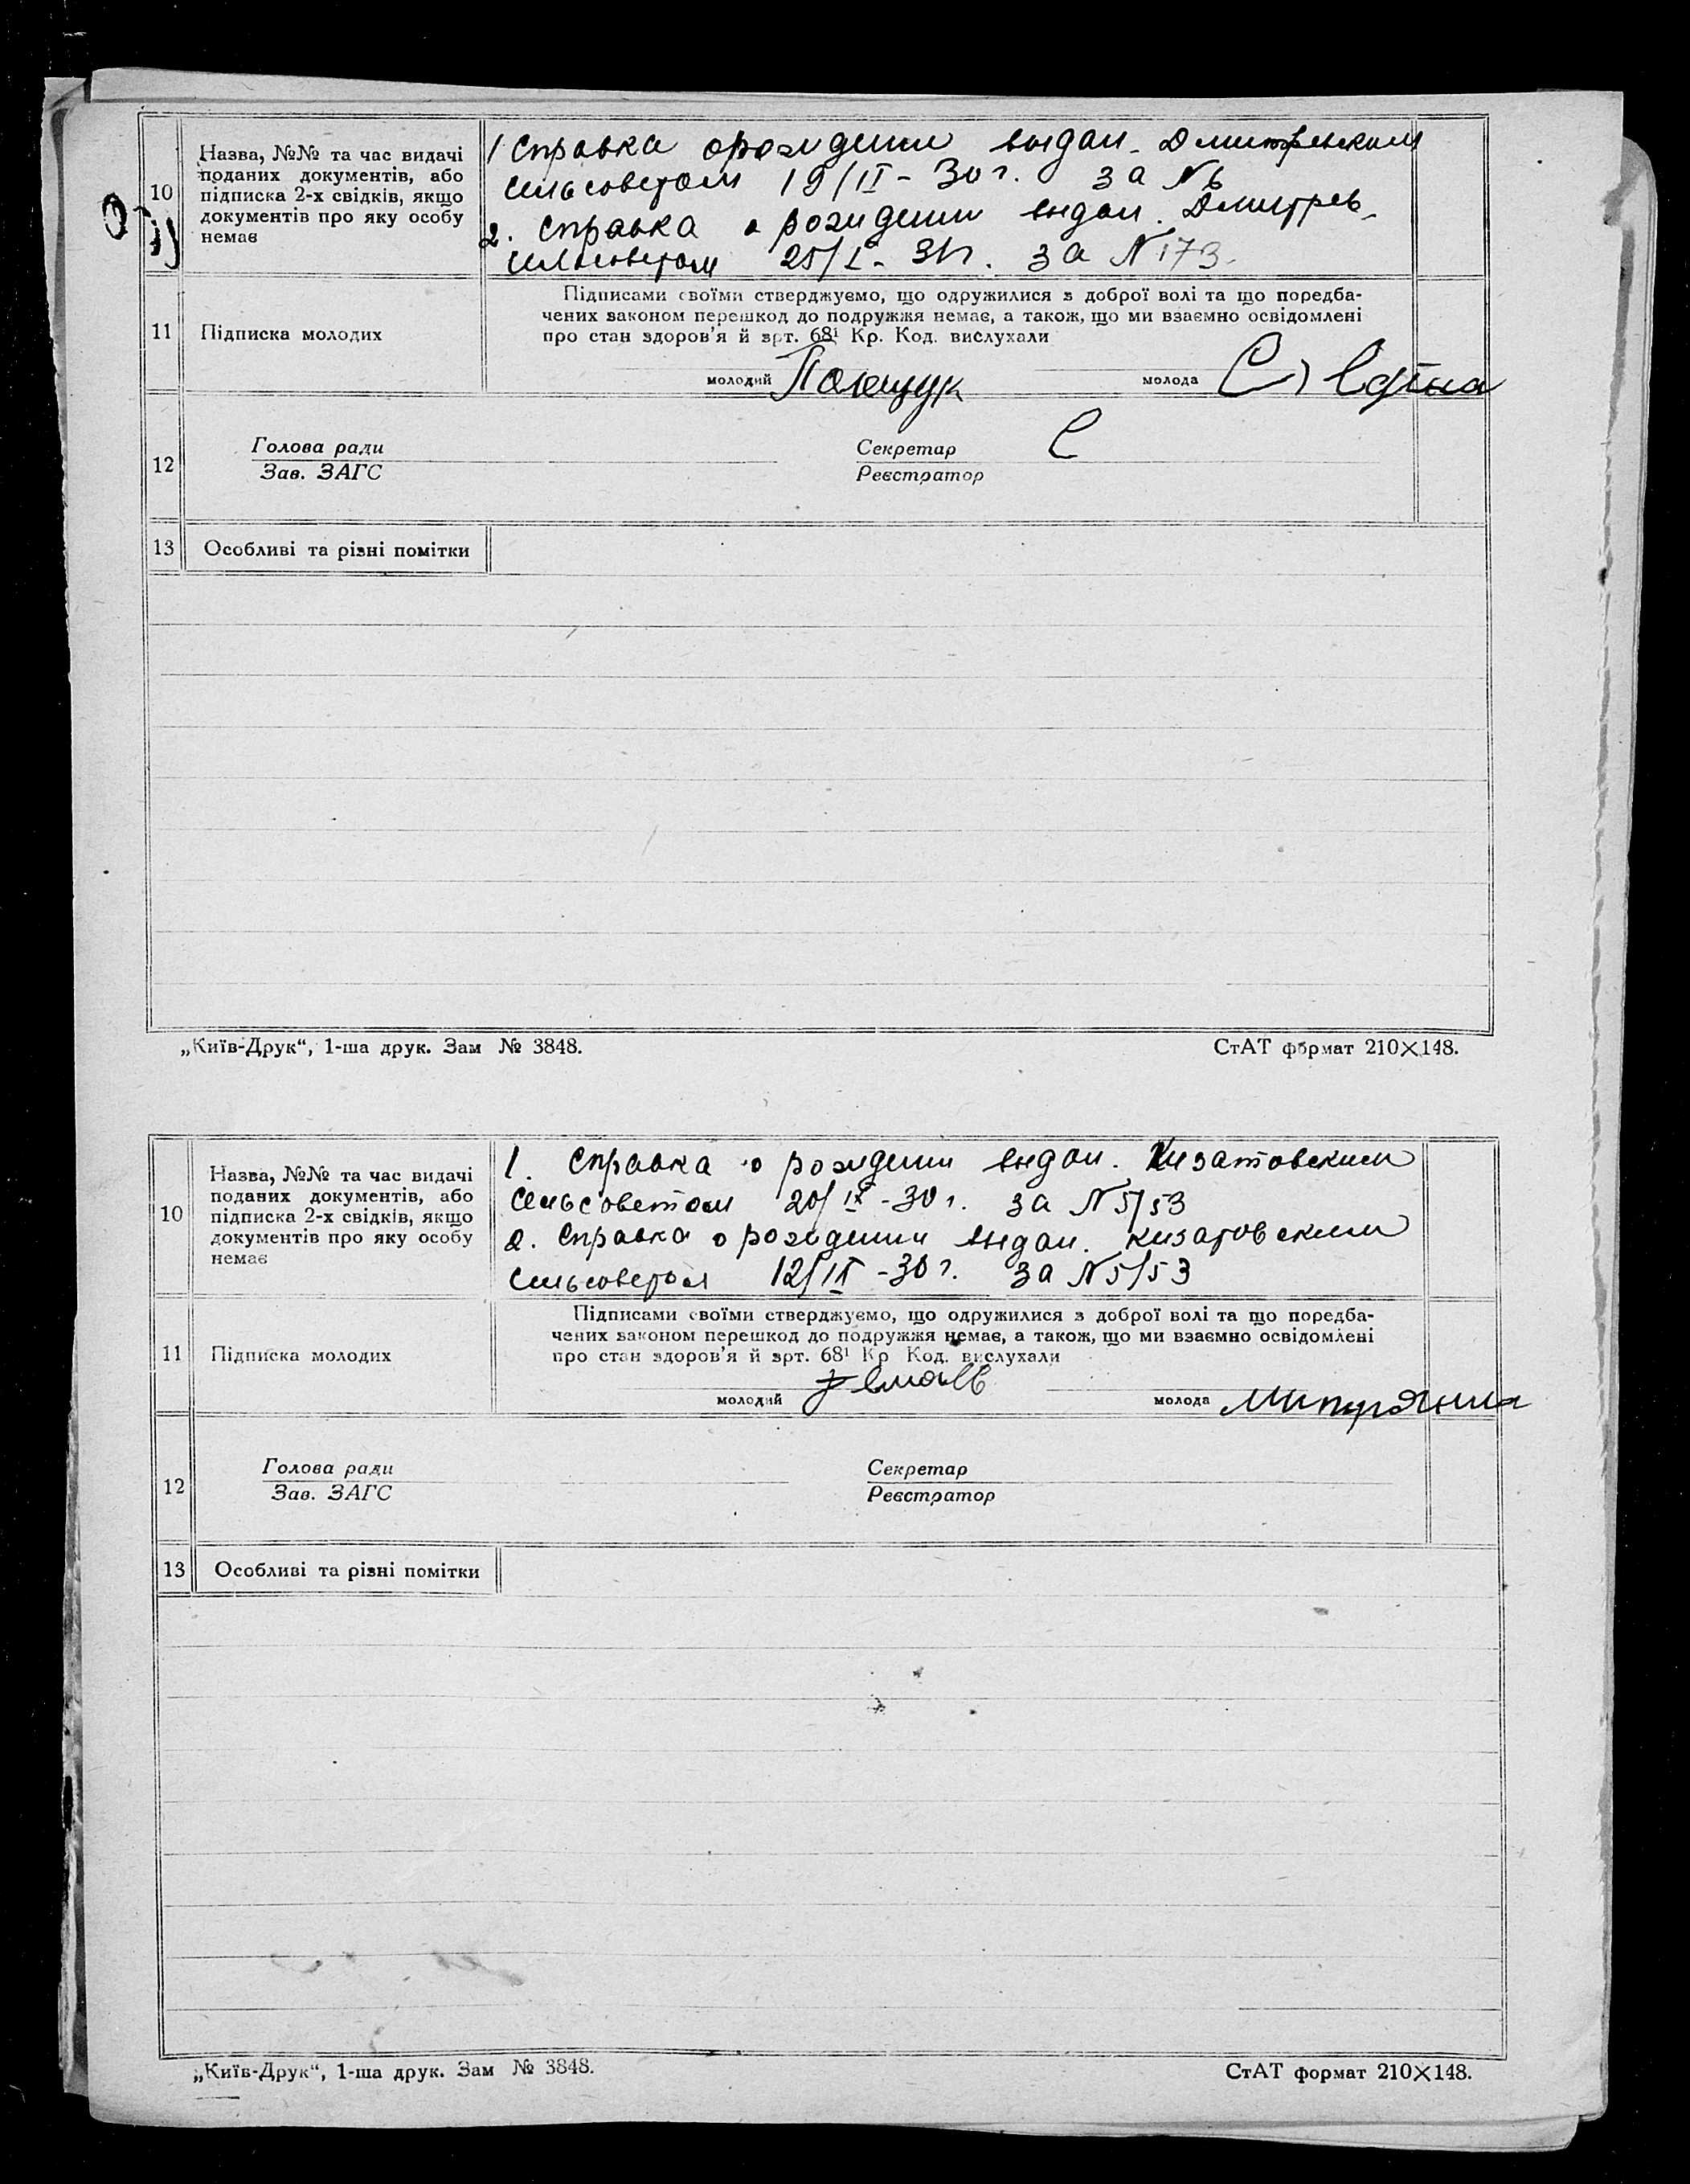 10
Назва, №№ та час видачі
поданих документів, або
підписка 2-х свідків, якщо
документів про яку особу
немає
1 Справка о рождении выдан. Дмитревским
сельсоветом 19/II - 30 г. за №
2. Справка о рождении выдан. Дмитрев.
сельсоветом 25/I - 31 г. за N 173
11
Підписка молодих
Підписами своїми стверджуємо, що одружилися з доброї волі та що поредба-
чених законом перешкод до подружжя немає, а також, що ми взаємно освідомлені
про стан здоров'я й зрт. 68¹ Кр. Код. вислухали
молодий
молода
12
Голова ради
Зав. ЗАГС
Секретар
Реєстратор
13
Особливі та різні помітки
„Київ-Друк“, 1-ша друк. Зам № 3848.
СтАТ формат 210×148.
10
Назва, №№ та час видачі
поданих документів, або
підписка 2-х свідків, якщо
документів про яку особу
немає
1. Справка о рождении выдан. Кизатовским
сельсоветом 20/IX - 30 г. за N 5/53
2. Справка о рождении выдан. Кизатовским
сельсоветом 12/IX - 30 г. за N 5/53
11
Підписка молодих
Підписами своїми стверджуємо, що одружилися з доброї волі та що поредба-
чених законом перешкод до подружжя немає, а також, що ми взаємно освідомлені
про стан здоров'я й зрт. 68¹ Кр Код. вислухали
молодий
молода
12
Голова ради
Зав. ЗАГС
Секретар
Реєстратор
13
Особливі та різні помітки
„Київ-Друк“, 1-ша друк. Зам № 3848.
СтАТ формат 210×148.